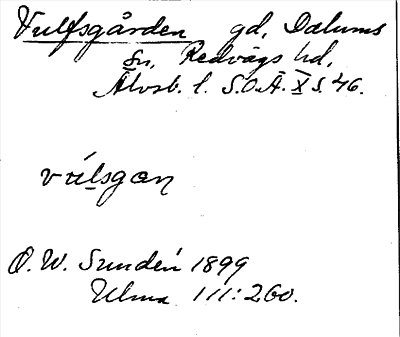 Vulfsgården gd, Dalums
sn, Redvägs hd,
Älvsb. l. S.O.Ä. X s. 46.
vúlsgaɲ
O. W. Sundén 1899
Ulma 111:260.